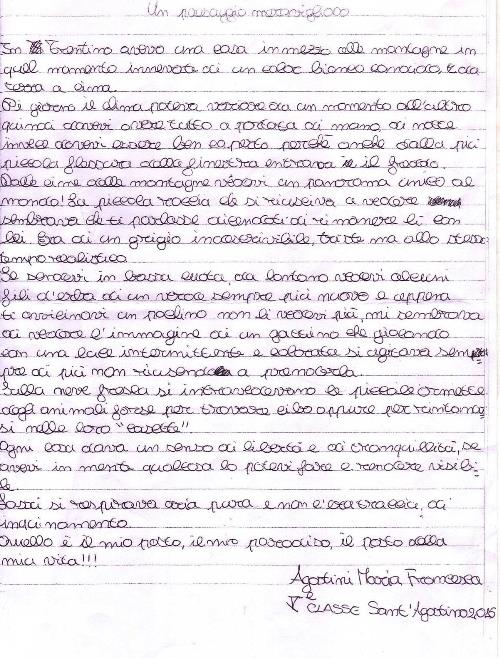 Un paesaggio meraviglioso
In Trentino avevo una casa in mezzo alle montagne in
quel momento innevate di un color bianco candido,
terra a cima.
Di giorno il clima poteva variare da un momento all'altro
quindi dovevi avere tutto a portata di mano, di notte
invece dovevi essere ben coperto perchè anche dalla più
piccola fessura della finestra entrava il freddo.
Dalle cime delle montagne vedevi un panorama unico al
mondo! La piccola roccia che si riusciva a vedere
sembrava che ti parlasse dicendoti di rimanere lì con
lei. Era di un grigio indescrivibile, triste ma allo stesso
tempo realistico.
Se scendevi in bassa quota, da lontano vedevi alcuni
fili d'erba di un verde sempre più nuovo e appena
ti avvicinavi un pochino non li vedevi più, mi sembrava
di vedere l'immagine di un gattino che giocando
con una luce intermittente e colorata si agitava sem
pre di più non riuscendo a prenderla.
Sulla neve fresca si intravedevano le piccole ormette
degli animali forse per trovare cibo oppure per rintanar
si nelle loro "casette".
Ogni cosa dava un senso di libertà e di tranquillità, se
avevi in mente qualcosa lo potevi fare e rendere visibi-
le.
Lassù si respirava aria pura e non c'era traccia, di
inquinamento.
Quello è il mio posto, il mio paradiso, il posto della
mia vita!!!
Agostini Maria Francesca
V^e CLASSE Sant'Agostino 2016